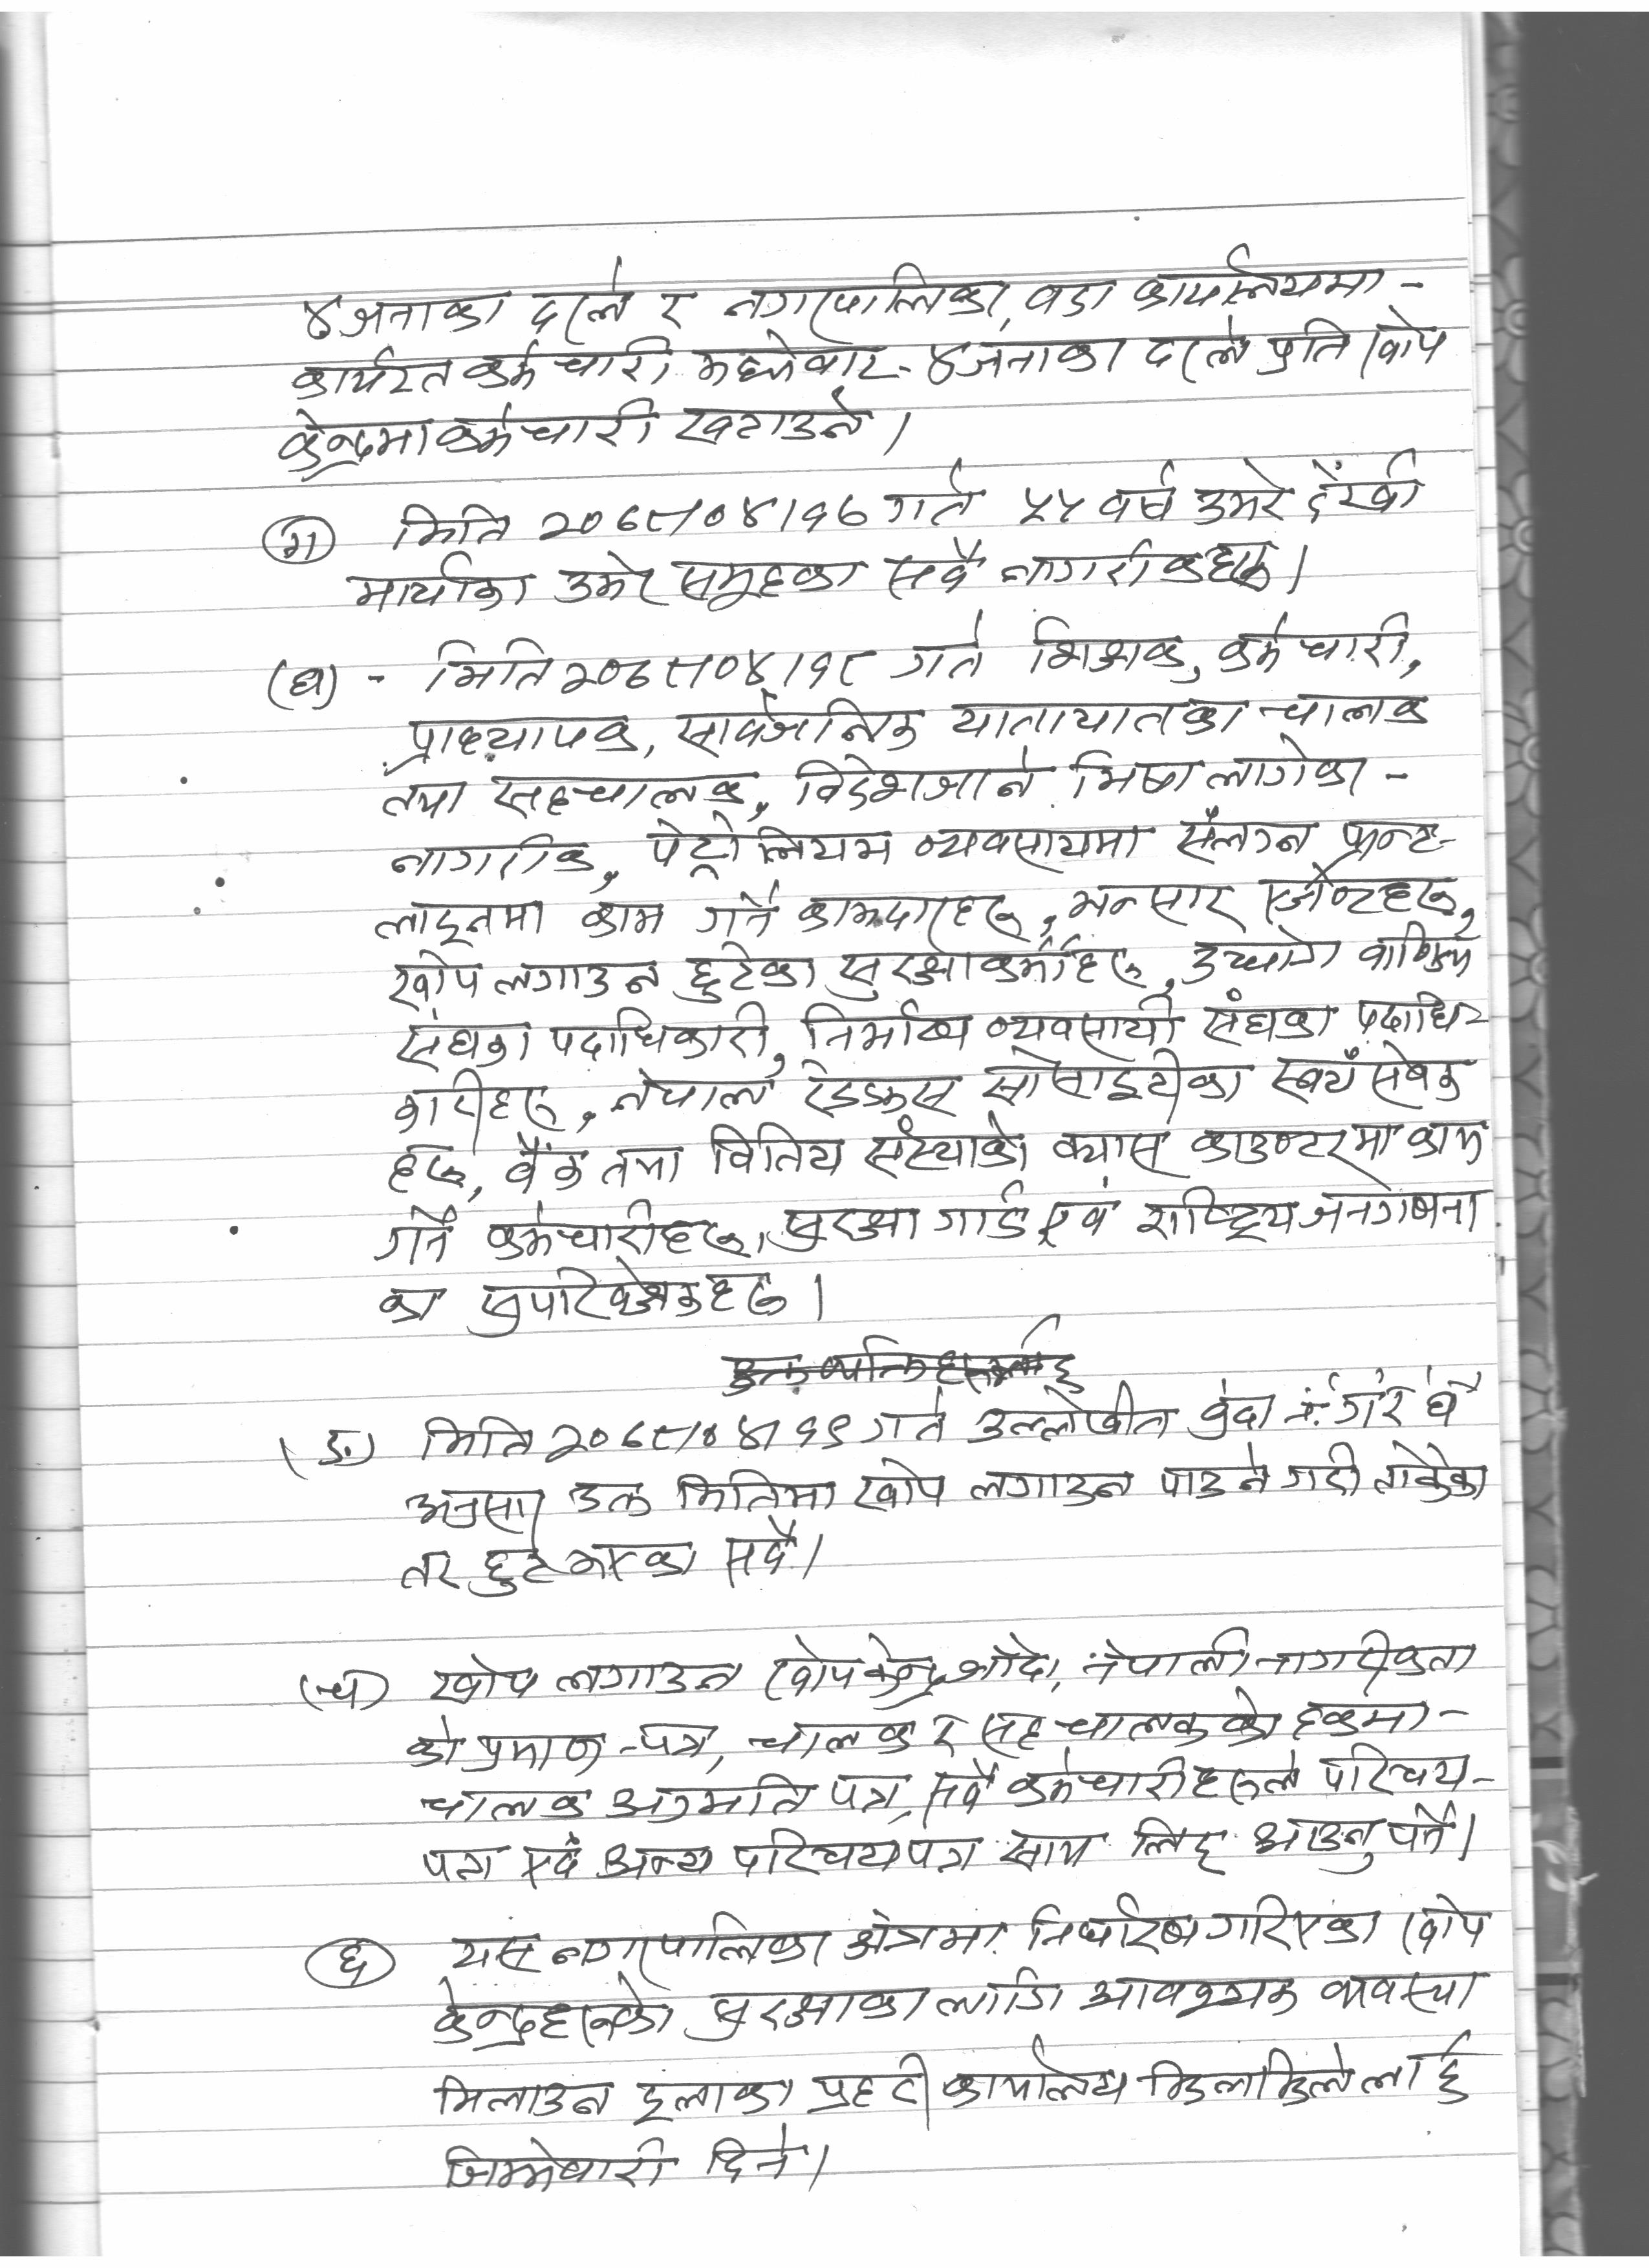 ४ जनाका दरले र नगरपालिका, वडा कार्यालयमा -
कार्यरत कर्मचारी मध्येबाट - ४ जनाका दरले प्रति खोप
केन्द्रमा कर्मचारी खटाउने।
(ग) मिति २०७८/०४/१७ गते ५५ वर्ष उमेर देखी
माथीका उमेर समूहका सबै नागरीकहरू।
(घ) - मिति २०७८/०४/१८ गते शिक्षक, कर्मचारी,
प्राध्यापक, सार्वजनिक यातायातका चालक
तथा सहचालक, विदेश जाने भिषा लागेका -
नागरीक, पेट्रोलियम व्यवसायमा संलग्न फ्रन्ट-
लाइनमा काम गर्ने कामदारहरू, भन्सार एजेण्टहरू,
खोप लगाउन छुटेका सुरक्षाकर्मीहरू, उद्योग वाणिज्य
संघका पदाधिकारी, निर्माण व्यवसायी संघका पदाधि-
कारीहरू, नेपाल रेडक्रस सोसाइटीका स्वयंसेवक
हरू, बैंक तथा वितिय संस्थाको क्यास काउण्टरमा काम
गर्ने कर्मचारीहरू, सुरक्षा गार्ड एवं राष्ट्रिय जनगणना
का सुपरिवेक्षकहरू।
उक्त व्यक्तिहरूलाई
(ङ) मिति २०७८/०४/१९ गते उल्लेखीत बुंदा नं. ग र घ मै
अनुसार उक्त मितिमा खोप लगाउन पाउने गरी तोकेका
तर छुट भएका सबै।
(च) खोप लगाउन खोपकेन्द्र आँदा, नेपाली नागरीकता
को प्रमाण-पत्र, चालक र सहचालकको हकमा -
चालक अनुमति पत्र, सबै कर्मचारीहरूले परिचय-
पत्र एवं अन्य परिचयपत्र साथ लिइ आउनु पर्ने।
(६) यस नगरपालिका क्षेत्रमा निर्धारण गरिएका खोप
केन्द्रहरूको सुरक्षाका लागि आवश्यक व्यवस्था
मिलाउन इलाका प्रहरी कार्यालय लाई
जिम्मेवारी दिने।